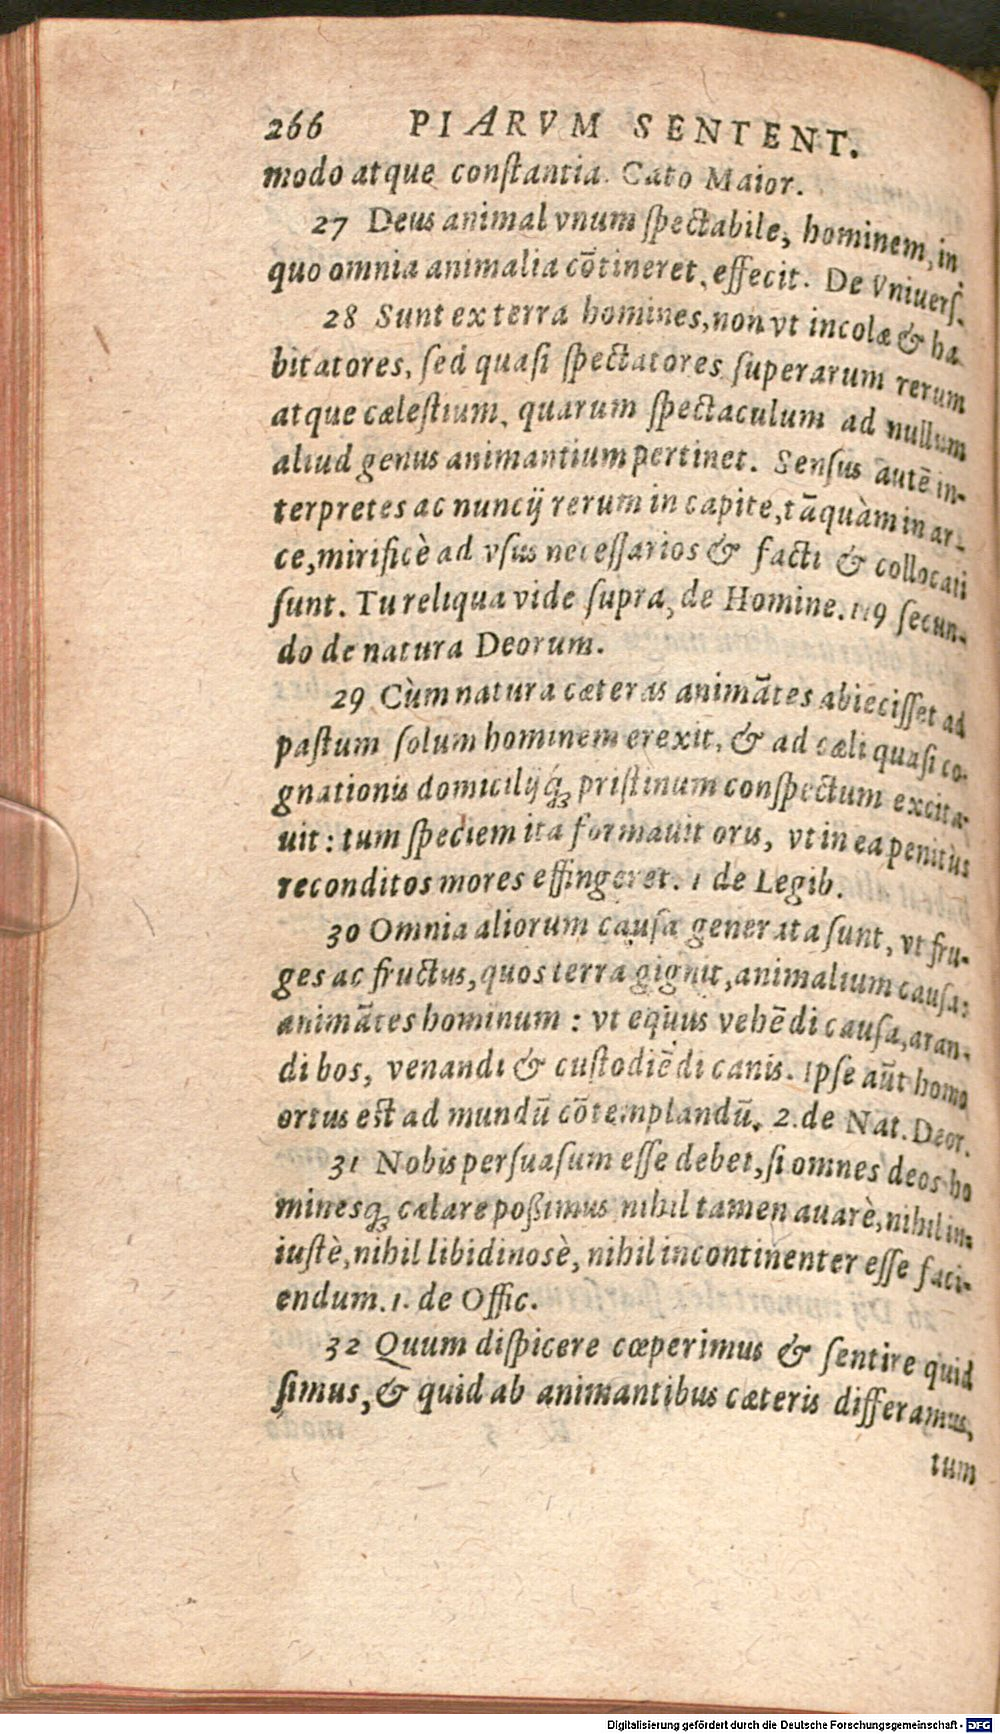 266 PIARVM SENTENT.
modo atque conſtantia. Cato Maior.
27 Deus animal vnum ſpectabile, hominem, in
quo omnia animalia cōtineret, effecit. De Vniuerſ.
28 Sunt ex terra homines, non vt incolæ & ha
bitatores, ſed quaſi ſpectatores ſuperarum rerum
atque cæleſtium, quarum ſpectaculum ad nullum
aliud genus animantium pertinet. Senſus autē in-
terpretes ac nuncij rerum in capite, tāquàm in ar-
ce, mirificè ad vſus neceſſarios & facti & collocati
ſunt. Tu reliqua vide ſupra, de Homine. 119 ſecun-
do de natura Deorum.
29 Cùm natura cæteras animātes abieciſſet ad
paſtum ſolum hominem erexit, & ad cæli quaſi co-
gnationis domicilijq́; priſtinum conſpectum excita-
uit: tum ſpeciem ita formauit oris, vt in ea penitùs
reconditos mores effingeret. 1 de Legib.
30 Omnia aliorum cauſa generata ſunt, vt fru-
ges ac fructus, quos terra gignit, animalium cauſa:
animātes hominum: vt equus vehēdi cauſa, aran-
di bos, venandi & cuſtodiēdi canis. Ipſe aūt homo
ortus eſt ad mundū cōtemplandū, 2. de Nat. Deor.
31 Nobis perſuaſum eſſe debet, ſi omnes deos ho
minesq; cælare poßimus nihil tamen auarè, nihil in-
iuſtè, nihil libidinosè, nihil incontinenter eſſe faci-
endum. 1. de Offic.
32 Quum diſpicere cœperimus & ſentire quid
ſimus, & quid ab animantibus cæteris differamus,
tum
Digitalisierung gefördert durch die Deutsche Forschungsgemeinschaft - DFG